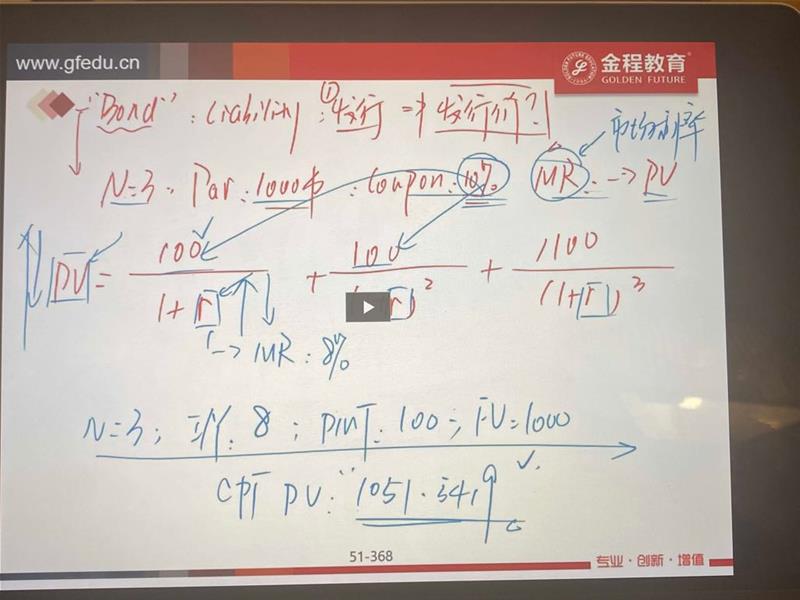 www.gfedu.cn
金程教育
GOLDEN FUTURE
"Bond" : Liability : ① 发行 => 发行价?
市场利率
N=3 . Par : 1000 : coupon : 10% MR : -> PV
PV = 100 / 1+r + 100 / ( r)² + 1100 / (1+r)³
-> MR : 8%
N=3 ; I/Y : 8 ; PMT : 100 ; FV=1000
CPT PV : 1051.5419
51-368
专业·创新·增值